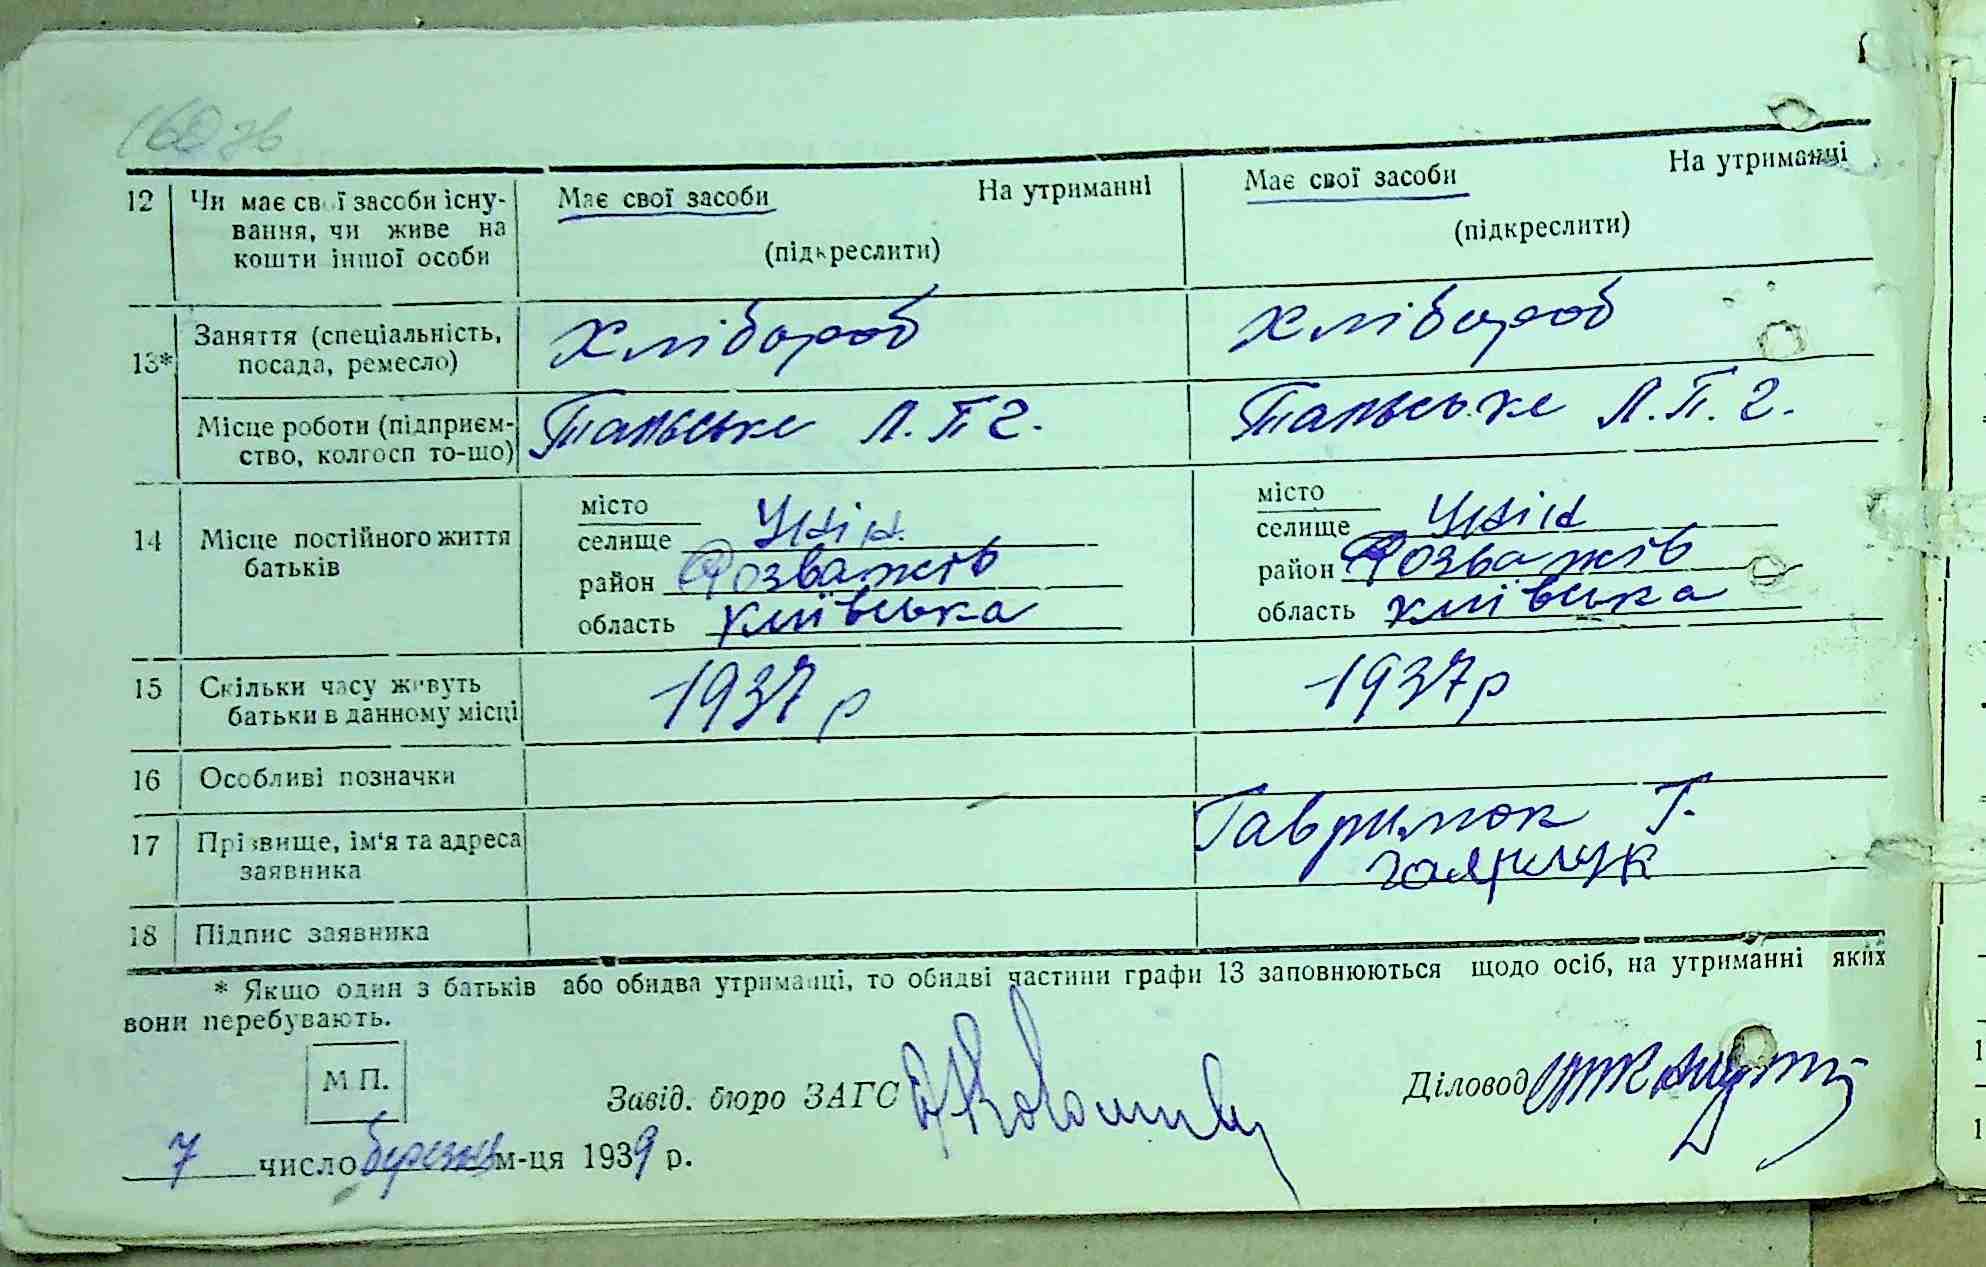 160 зв
12 Чи має свої засоби існу- Має свої засоби На утриманні Має свої засоби На утриманні
вання, чи живе на (підкреслити) (підкреслити)
кошти іншої особи
13* Заняття (спеціальність, Хлібороб Хлібороб
посада, ремесло)
Місце роботи (підприєм- Тальське Л.П.Г. Тальське Л.П.Г.
ство, колгосп то-що)
14 Місце постійного життя місто місто
батьків селище Унін селище Унін
район Розважів район Розважів
область київська область київська
15 Скільки часу живуть 1937 р 1937 р
батьки в данному місці
16 Особливі позначки
17 Прізвище, ім'я та адреса Гаврилюк Г.
заявника
18 Підпис заявника
* Якщо один з батьків або обидва утриманці, то обидві частини графи 13 заповнюються щодо осіб, на утриманні яких
вони перебувають.
М П.
Завід. бюро ЗАГС Діловод
7 число березня м-ця 1939 р.